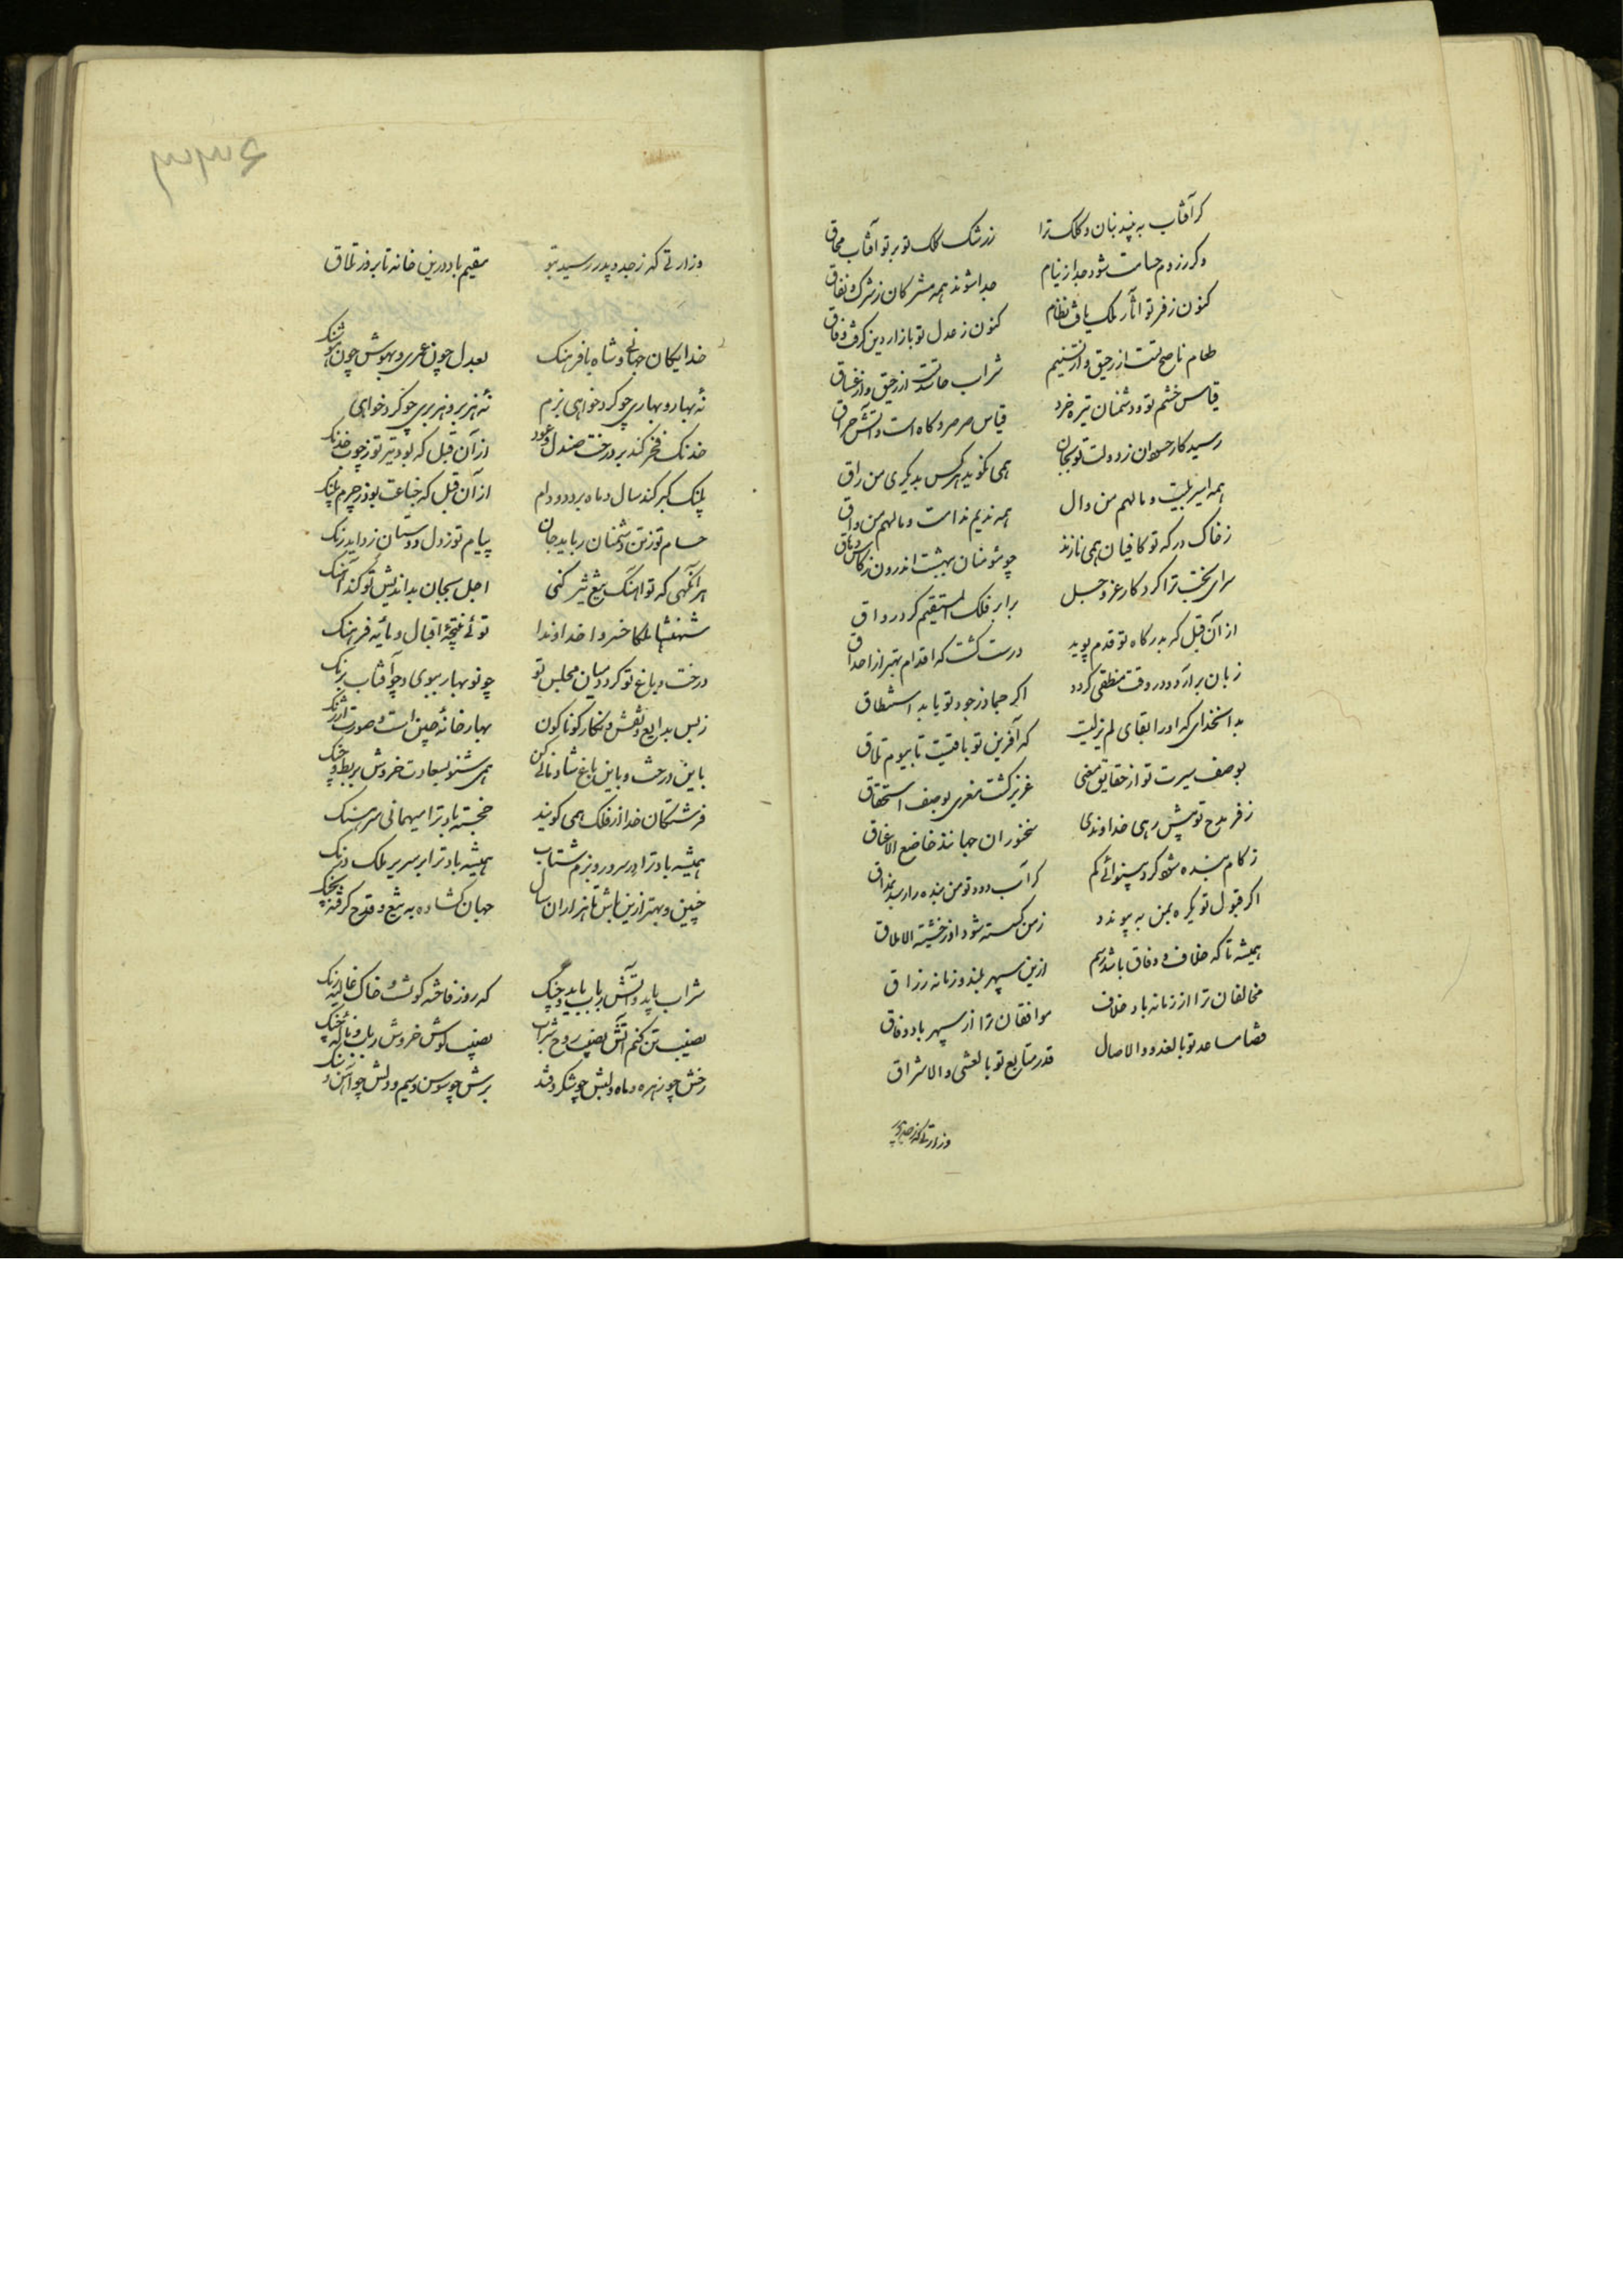 گر آفتاب به بیند بنان و کلک ترا زرشک کلک تو بر تو آفتاب محاق
وگر رزوم حسامت شود جدا ز نیام جدا شوند همه مشرکان ز شرک و نفاق
کنون ز فر تو آثار ملک یافت نظام کنون ز عدل تو بازار دین گرفت وفاق
طعام ناصح تست از رحیق و از تسنیم شراب حاسد تست از حمیق و از غساق
قیاس خشم تو و دشمنان تیره خرد قیاس صرصر و کاه است و آتش حراق
رسید کار حسودان ز دولت تو بجان همی نگوید هر کس بدیگری من راق
همه اسیر بلیت و مالهم من وال همه ندیم ندامت و مالهم من واق
ز خاک درگه تو کافیان همی نازند چو مؤمنان ببهشت اندرون ز کاس دهاق
سرای بخت ترا کردگار عز و جل برابر فلک المستقیم کرد رواق
از آن قبل که بدرگاه تو قدم پوید درست گشت که اقدام بهتر از احداق
زبان برآرد و در وقت منطقی گردد اگر جماد ز جود تو یابد استنطاق
بدانخدای که او را بقای لم یزلیت که آفرین تو باقیست تا بیوم تلاق
بوصف سیرت تو از حقایق معنی عزیز گشت معزی بوصف استحقاق
ز فر مدح تو پیش رهی خداوندی سخنوران جهانند خاضع الاعناق
ز کام بنده شود گرد بینوائی کم گر آب دود تو من بنده را رسد بمذاق
اگر قبول تو یکره بمن به پیوندد ز من گسسته شود از خشیته الاملاق
همیشه تا که خلاف و وفاق باشد رسم ازین سپهر بلند و زمانه رزاق
مخالفان ترا از زمانه باد خلاف موافقان ترا از سپهر باد وفاق
قضا مساعد تو بالغدو و الاصال قدر متابع تو بالعشی و الاشراق
وزارتی که ز جد و پدر
۶۳۳۳
وزارتی که ز جد و پدر رسید بتو مقیم باد درین خانه تا بروز تلاق
خدایگان جهانی و شاه با فرهنگ بعدل چون عمری و بهوش چون هوشنگ
نه بهار و بهاری چو کرد خواهی بزم نه هزبر و هزبری چو کرد خواهی
خدنک فخر کند بر درخت صندل و عود از آن قبل که بود تیر تو ز چوب خدنک
پلنک کبر کند سال و ماه بر دد و دام از آن قبل که جناغت بود ز چرم پلنک
حسام تو ز تن دشمنان رباید جان پیام تو ز دل دوستان زداید زنک
هر آنگهی که تو آهنگ تیغ تیز کنی اجل بجان بداندیش تو کند آهنگ
شهنشها ملکا خسروا خداوندا توئی نتیجهٔ اقبال و مایهٔ فرهنک
درخت و باغ تو کرد میان مجلس تو چو نوبهار ببوی و چو آفتاب برنک
ز بس بدایع و نقش و نگار گوناگون بهارخانهٔ چین است و صورت ارژنک
باین درخت و باین باغ شادمانی کن همی شنو بسعادت خروش بربط و چنک
فرشتگان خدا از فلک همی گویند خجسته باد ترا میهمانی سرهنک
همیشه باد ترا در سرور و بزم شتاب همیشه باد ترا بر سریر ملک درنک
چنین و بهتر ازین باش تا هزاران سال جهان گشاده به تیغ و قدح گرفته بچنک
شراب باید و آتش رباب باید و چنک که روز فاخته گونست و خاک غالیه رنک
نصیب تن کنم آتش نصیب روح شراب نصیب گوش خروش رباب و نالهٔ چنک
رخش چو زهره و ماه و لبش چو شکر و قند برش چو سوسن و سیم و دلش چو آهن و سنک